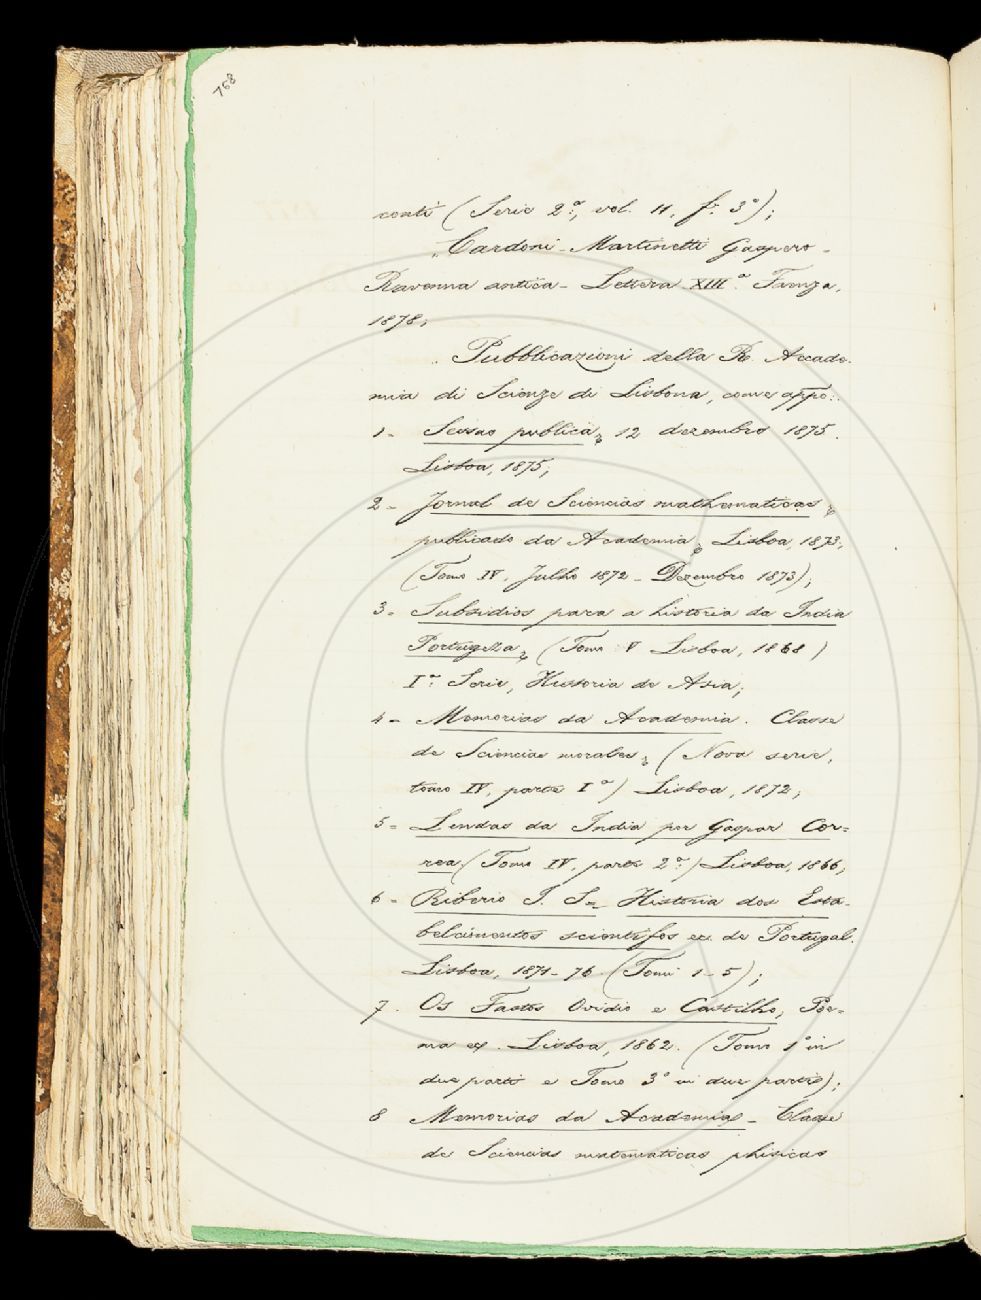 768
conti (Serie 2ª, vol. 11, f. 3°);
Cardoni-Martinetti Gaspero -
Ravenna antica - Lettera XIIIª. Faenza,
1878;
Pubblicazioni della R. Accade-
mia di Scienze di Lisbona, come app:
1- Sessao publica, 12 dezembro 1875.
Lisboa, 1875;
2- Jornal de Sciencias mathematicas,
publicado da Academia, Lisboa, 1873,
(Tomo IV. Julho 1872 - Dezembro 1873);
3- Subsidios para a historia da India
Portugeza, (Tomo V Lisboa, 1868)
Iª. Serie, Historia de Asia;
4- Memorias da Academia. Classe
de Sciencias morales, (Nova serie,
tomo IV, parte Iª) Lisboa, 1872;
5- Lendas da India por Gaspar Cor-
rea (Tomo IV, parte 2ª) Lisboa, 1866;
6- Riberio J. S. - Historia dos Esta-
belcimentos scientifos ec. de Portugal.
Lisboa, 1871-76 (Tomi 1-5);
7. Os Fastos Ovidio e Castilho, Poe-
ma ec. Lisboa, 1862. (Tomo 1° in
due parti e Tomo 3° in due partie);
8 Memorias da Academia - Classe
de Sciencias matematicas phisicas